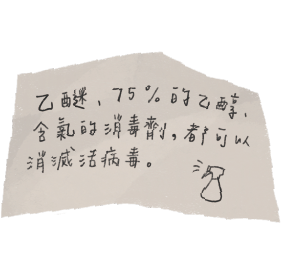 乙醚、75%的乙醇、
含氯的消毒劑，都可以
消滅活病毒。